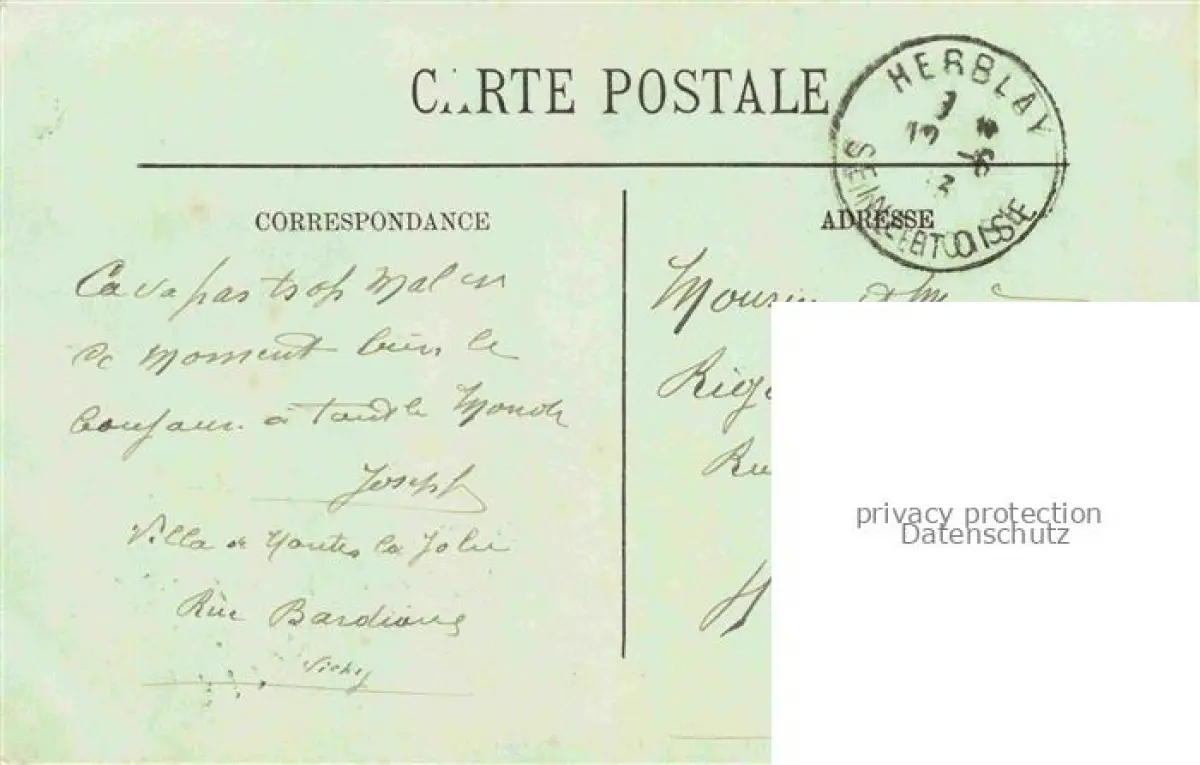 CARTE POSTALE
HERBLAY
SEINE-ET-OISE
CORRESPONDANCE
ADRESSE
Ca va pas trop mal en
ce moment bien le
bonjour à tout le Monde
Joseph
Villa de Mantes la Jolie
Rue
Vichy
Rig
Ru
privacy protection
Datenschutz